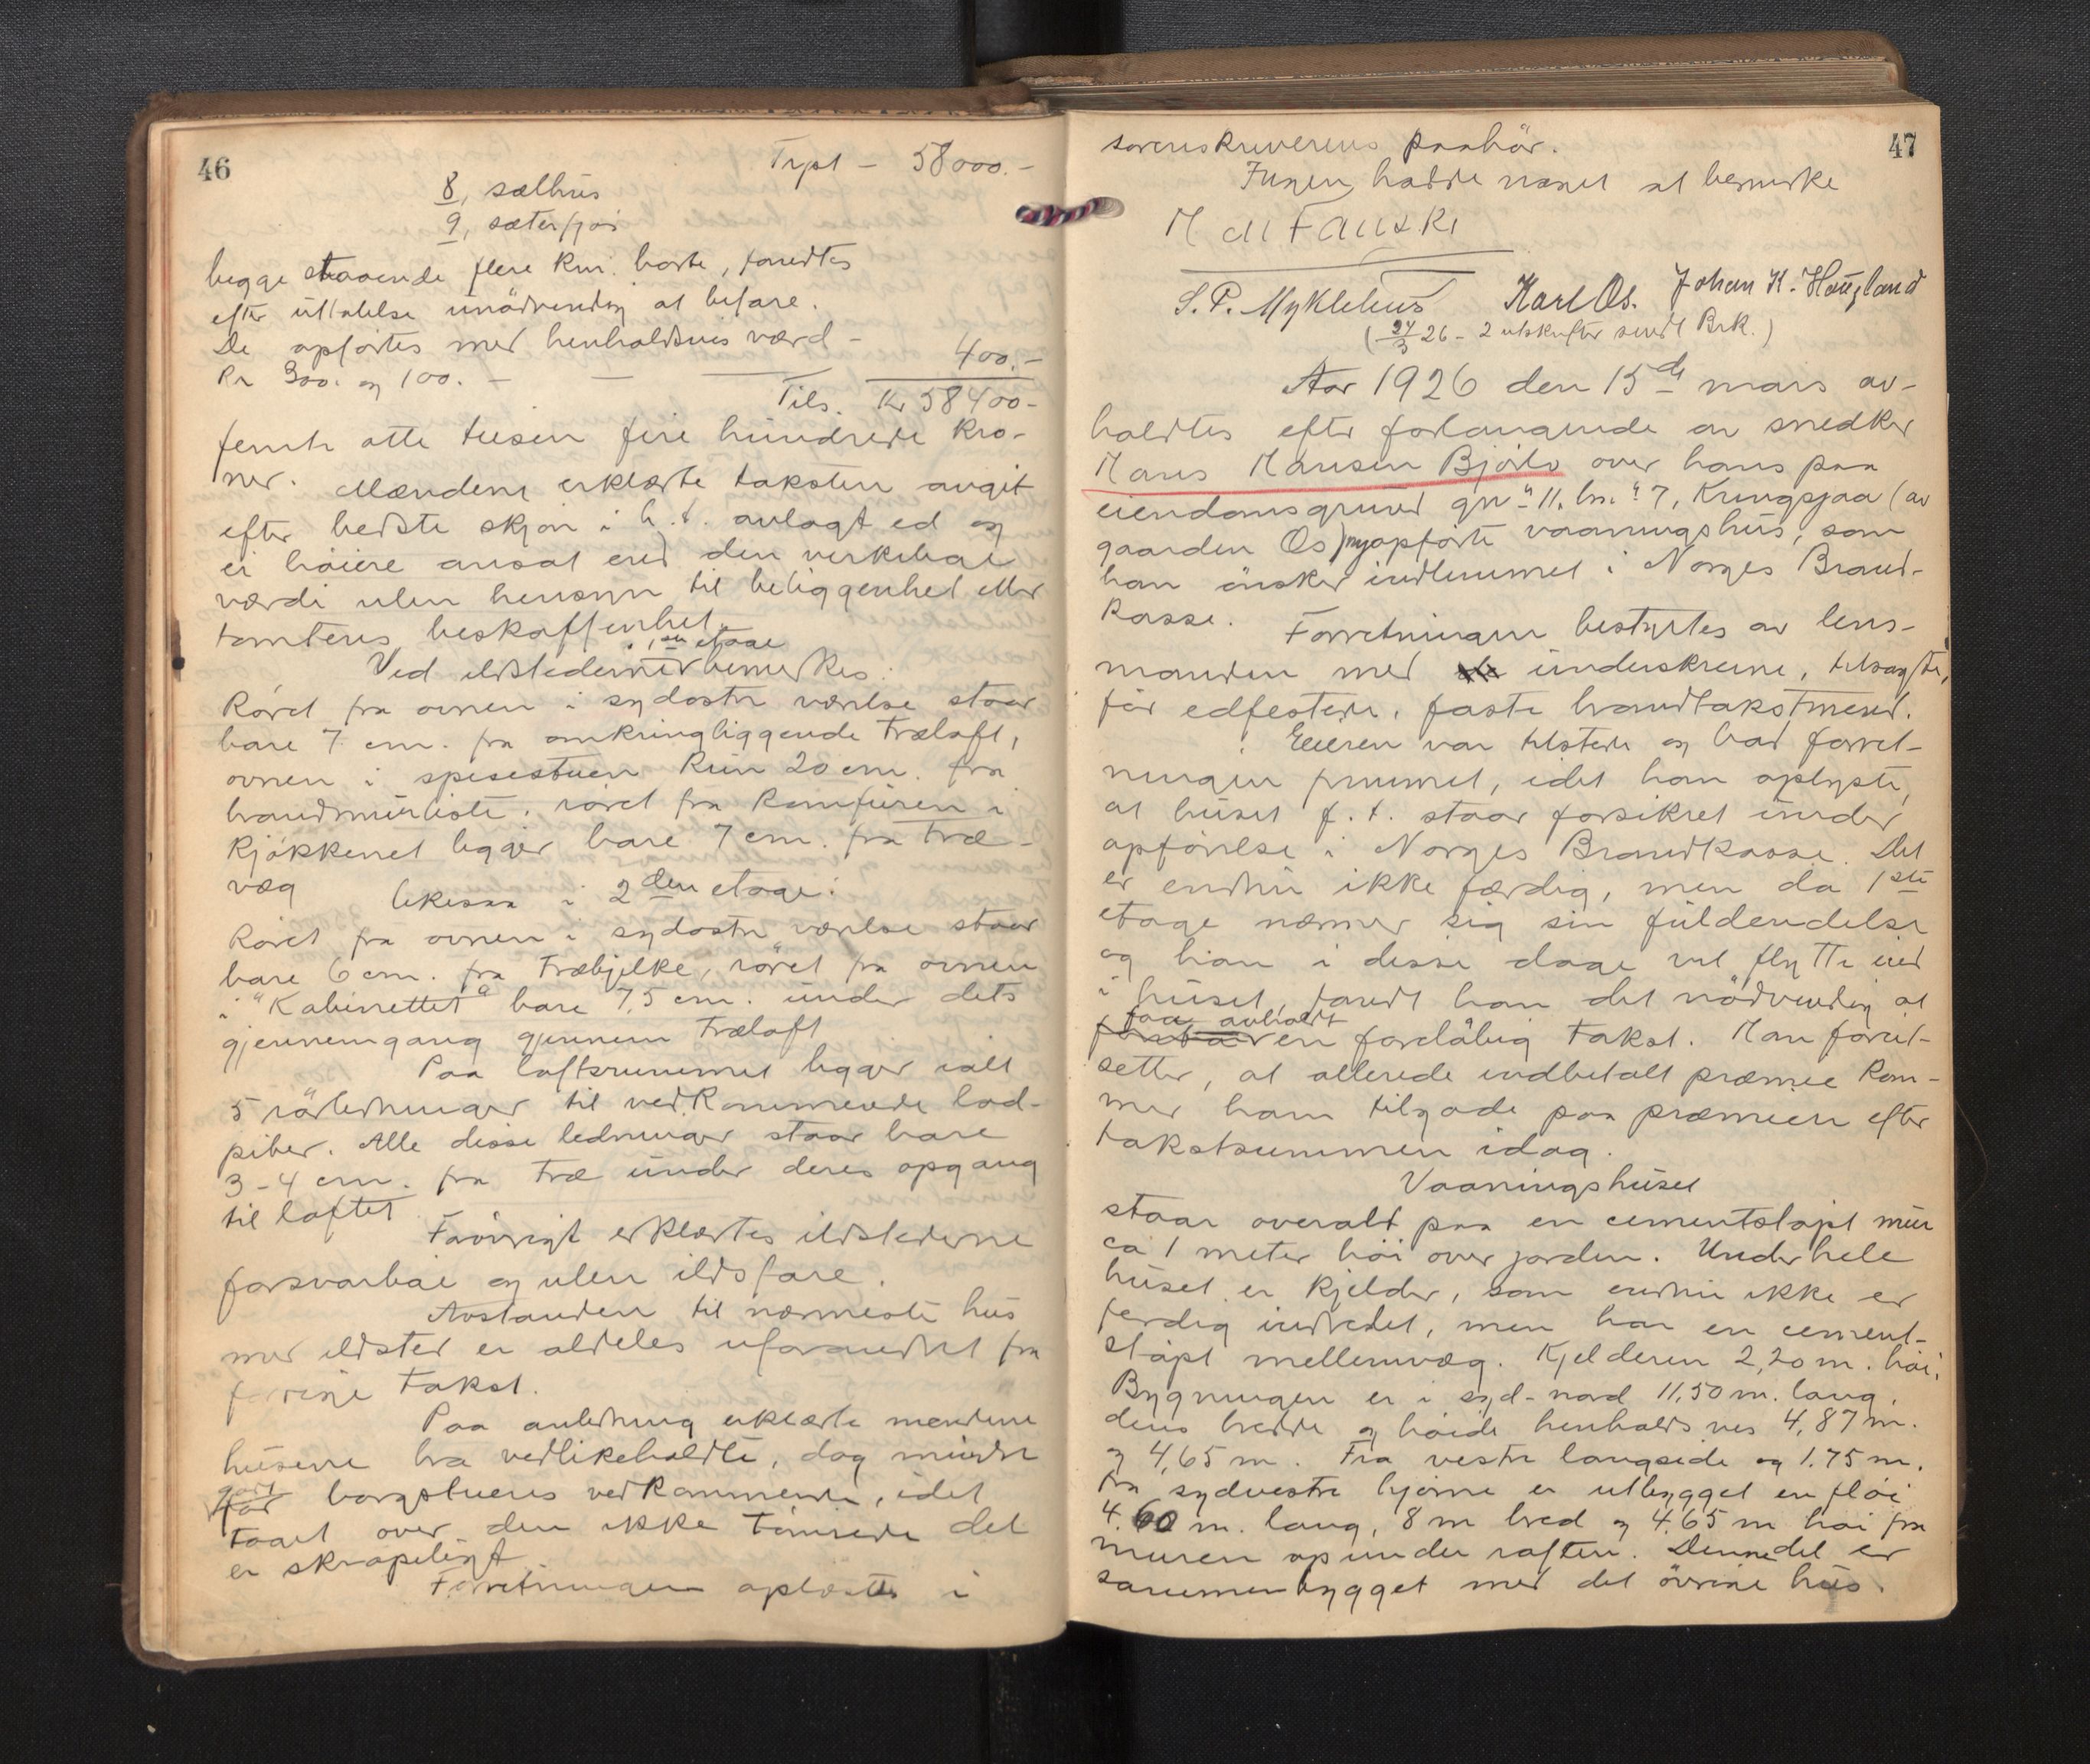 46
Trpt – 58000.–
8, sælhus
9, sæterfjøs
begge staaende flere km. borte, fandtes
efter uttalelse unödvendig at befare.
De opförtes med henholdsvis værd –
Kr 300. og 100. – — — 400.–
Tils. Kr 58400–
femti otte tusen fire hundrede kro-
ner. Mændene erklærte taksten avgit
efter bedste skjön i h. t. avlagt ed og
ei höiere ansat end den virkelige
værdi uten hensyn til beliggenhet eller
tomtens beskaffenhet.
Ved ildstederne i 1ste etage bemerkes:
Röret fra ovnen i sydöstre værelse staar
bare 7 cm. fra omkringliggende træloft,
ovnen i spisestuen kun 20 cm. fra
brandmurliste, röret fra komfüren i
kjökkenet ligger bare 7 cm. fra træ-
væg likesaa i 2den etage:
Röret fra ovnen i sydöstre værelse staar
bare 6 cm. fra træbjelke, röret fra ovnen
i "Kabinettet" bare 7,5 cm. under dets
gjennemgang gjennem træloft
Paa loftsrummet ligger ialt
5 rörledninger til vedkommende lod-
piber. Alle disse ledninger staar bare
3-4 cm. fra træ under deres opgang
til loftet
Forövrigt erklærtes ildstederne
forsvarlige og uten ildsfare.
Avstanden til nærmeste hus
med ildsted er aldeles uforandret fra
forrige takst.
Paa anledning erklærte mændene
husene bra vedlikeholdte, dog mindre
godt for borgstuens vedkommende, idet
taget over den ikke tömrede del
er skröpeligt
Forretningen oplæstes i
47
sorenskriverens paahör.
Ingen hadde noget at bemerke
M Fauske
S. P. Myklebus Karl Os. Johan K. Haugland
(24/3 26 – 2 utskrifter sendt Brk.)
Aar 1926 den 15de mars av-
holdtes efter forlangende av snedker
Hans Hansen Björlo over hans paa
eiendomsgrund gr.nr 11, br.nr 7, Kringsjaa (av
gaarden Os) nyopförte vaaningshus, som
han önsker indlemmet i Norges Brand-
kasse. Forretningen bestyrtes av lens-
manden med underskrevne, tilsagte,
för edfestede, faste brandtakstmend.
Eieren var tilstede og bad forret-
ningen fremmet, idet han oplyste,
at huset f. t. staar forsikret under
opförelse i Norges Brandkasse. Det
er endnu ikke færdig, men da 1ste
etage nærmer sig sin fuldendelse
og han i disse dage vil flytte ind
i huset, fandt han det nödvendig at
faa avholdt en foreløbig takst. Han forut-
setter, at allerede indbetalt præmie kom-
mer ham tilgode paa præmien efter
takstsummen idag.
Vaaningshuset
staar overalt paa en cementstöpt mur
ca 1 meter höi over jorden. Under hele
huset er kjelder, som endnu ikke er
ferdig indredet, men har en cement-
stöpt mellemvæg. Kjelderen 2,20 m. höi.
Bygningen er i syd-nord 11,50 m. lang,
dens bredde og höide henholdsvis 4,87 m.
og 4,65 m. Fra vestre langside og 1.75 m.
fra sydvestre hjörne er utbygget en flöi
4.60 m. lang, 8 m bred og 4,65 m höi fra
muren op under raften. Denne del er
sammenbygget med det övrige hus.